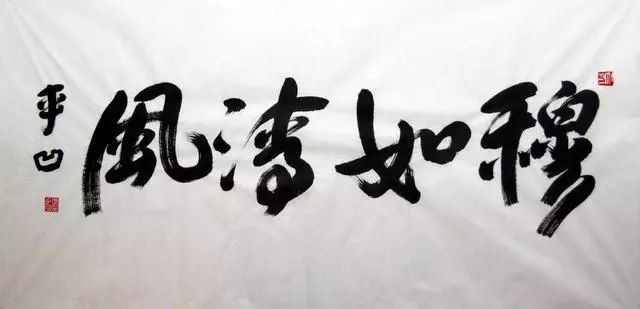 穆如清風
平凹